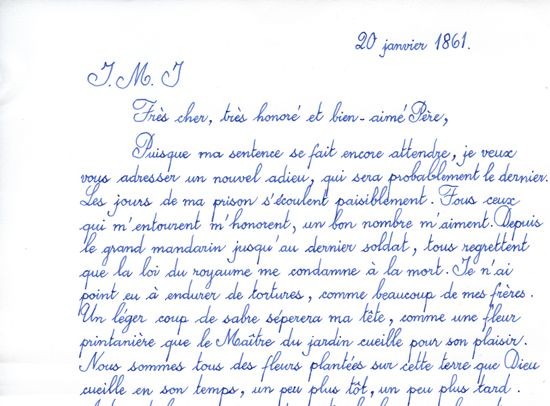 20 janvier 1861.
J. M. J
Très cher, très honoré et bien-aimé Père,
Puisque ma sentence se fait encore attendre, je veux
vous adresser un nouvel adieu, qui sera probablement le dernier.
Les jours de ma prison s'écoulent paisiblement. Tous ceux
qui m'entourent m'honorent, un bon nombre m'aiment. Depuis
le grand mandarin jusqu'au dernier soldat, tous regrettent
que la loi du royaume me condamne à la mort. Je n'ai
point eu à endurer de tortures, comme beaucoup de mes frères.
Un léger coup de sabre séperera ma tête, comme une fleur
printanière que le Maître du jardin cueille pour son plaisir.
Nous sommes tous des fleurs plantées sur cette terre que Dieu
cueille en son temps, un peu plus tôt, un peu plus tard.